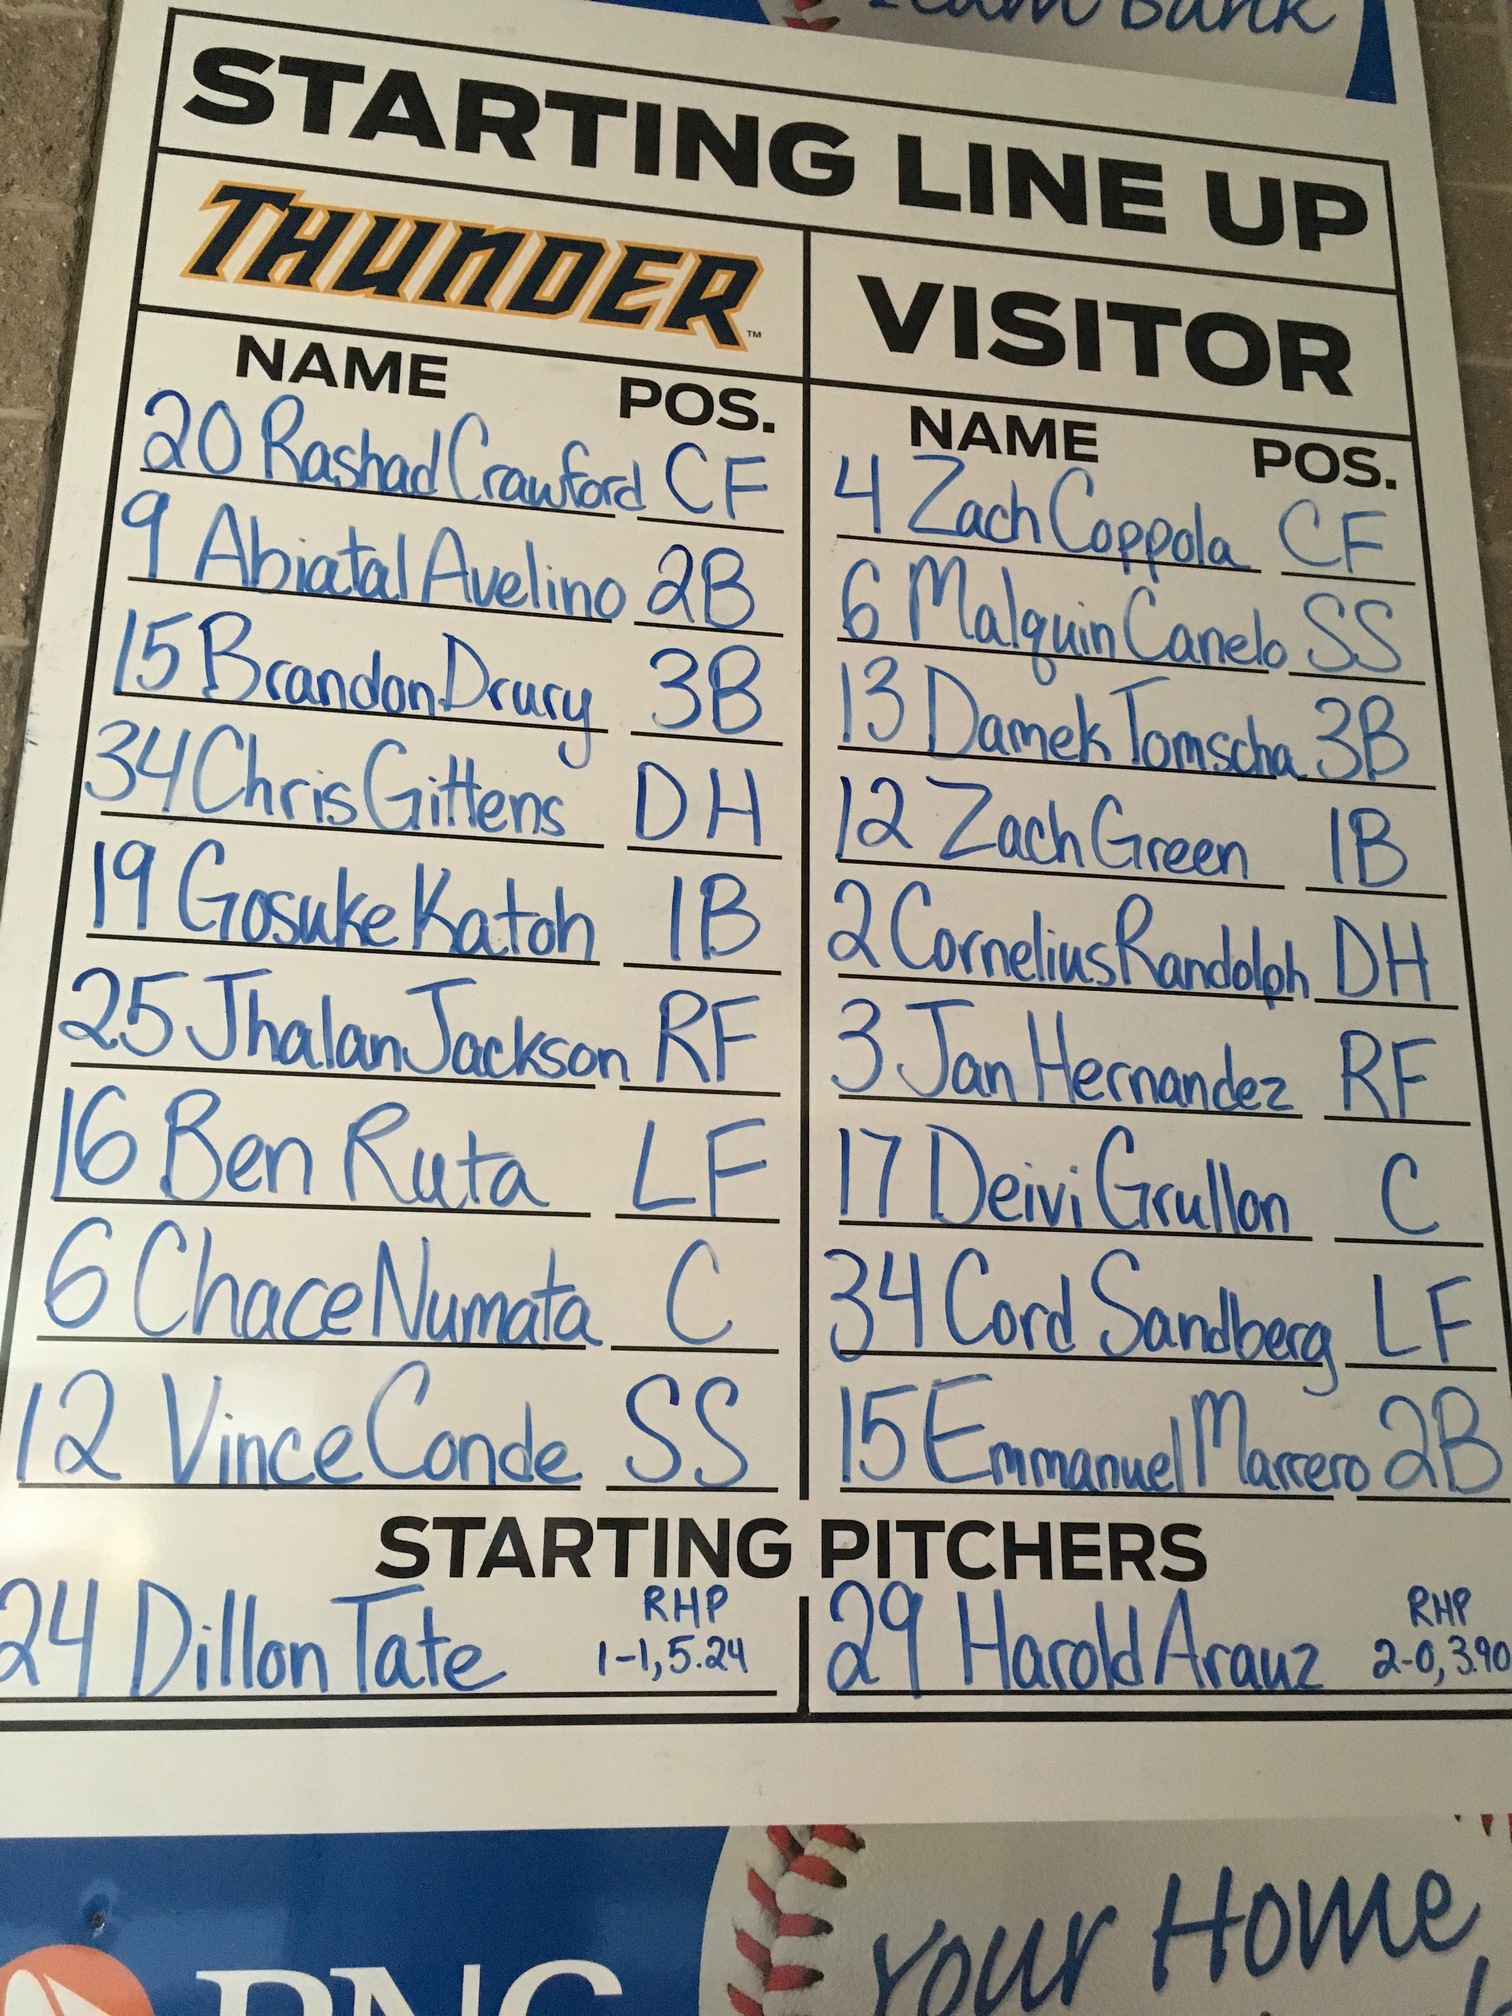 Team Bank
STARTING LINE UP
THUNDER™
VISITOR
NAME POS.
20 Rashad Crawford CF
9 Abiatal Avelino 2B
15 Brandon Drury 3B
34 Chris Gittens DH
19 Gosuke Katoh 1B
25 Jhalan Jackson RF
16 Ben Ruta LF
6 Chace Numata C
12 Vince Conde SS
NAME POS.
4 Zach Coppola CF
6 Malquin Canelo SS
13 Damek Tomscha 3B
12 Zach Green 1B
2 Cornelius Randolph DH
3 Jan Hernandez RF
17 Deivi Grullon C
34 Cord Sandberg LF
15 Emmanuel Marrero 2B
STARTING PITCHERS
24 Dillon Tate RHP
1-1, 5.24
29 Harold Arauz RHP
2-0, 3.90
PNC
Your Home